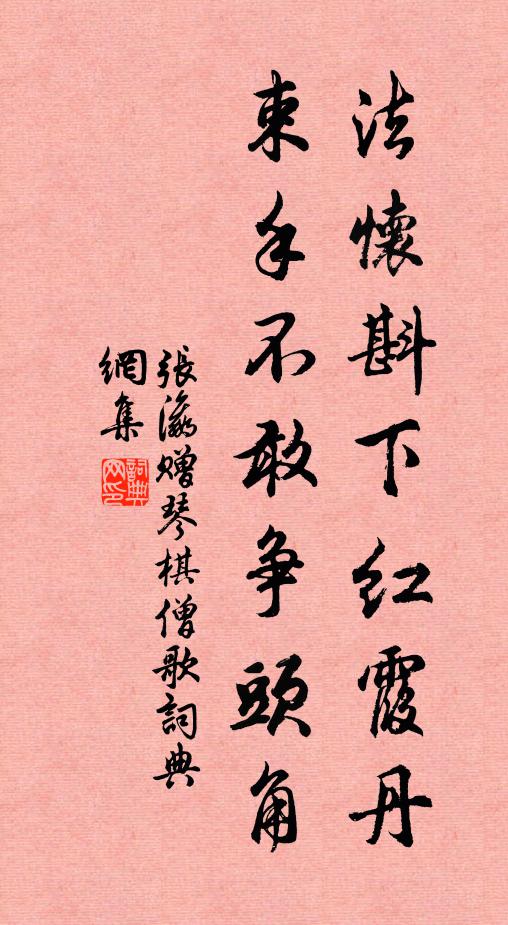 法懷斟下紅霞丹
束手不敢争頭角
張瀛赠琴棋僧歌詞典
網集
詞典網印